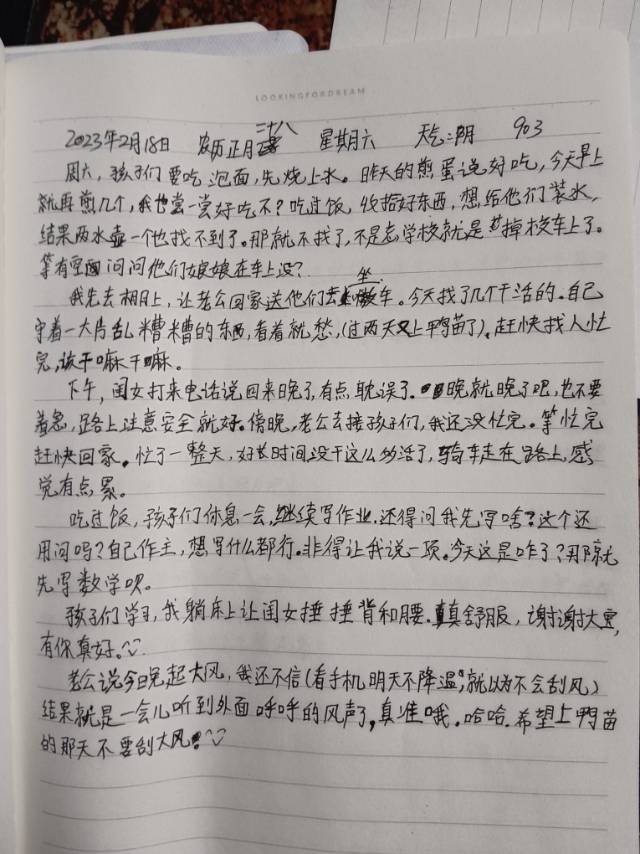 LOOKINGFORDREAM
2023年2月18日 农历正月二十八 星期六 天气:阴 903
周六,孩子们要吃泡面,先烧上水。昨天的煎蛋说好吃,今天早上
就再煎几个,我也尝一尝好吃不?吃过饭,收拾好东西,想给他们装水,
结果两水壶一个也找不到了。那就不找了,不是忘学校就是掉校车上了。
等有空间问问他们娘娘在车上没?
我先去棚上,让老公回家送他们去坐车。今天找了几个干活的。自己
守着一大片乱糟糟的东西,看着就愁,(过两天又上鸭苗了)。赶快找人忙
完,该干嘛干嘛。
下午,闺女打来电话说回来晚了,有点耽误了。晚就晚了吧,也不要
着急,路上注意安全就好。傍晚,老公去接孩子们,我还没忙完。等忙完
赶快回家。忙了一整天,好长时间没干这么多活了,骑车走在路上,感
觉有点累。
吃过饭,孩子们休息一会,继续写作业.还得问我先写啥?这个还
用问吗?自己作主,想写什么都行。非得让我说一项。今天这是咋了?那就
先写数学呗。
孩子们学习,我躺床上让闺女捶捶背和腰.真舒服,谢谢大宝,
有你真好。
老公说今晚起大风,我还不信(看手机明天不降温,就以为不会刮风)
结果就是一会儿听到外面呼呼的风声了,真准哦.哈哈.希望上鸭苗
的那天不要刮大风!